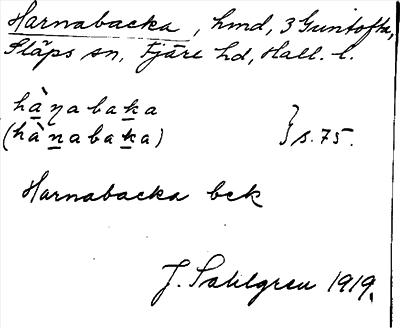 Harnabacka, hmd, 3 Guntofta,
Släps sn, Fjäre hd, Hall. l.
hàꞃabaka
(hànabaka) } s. 75.
Harnabacka bck
J. Sahlgren 1919.